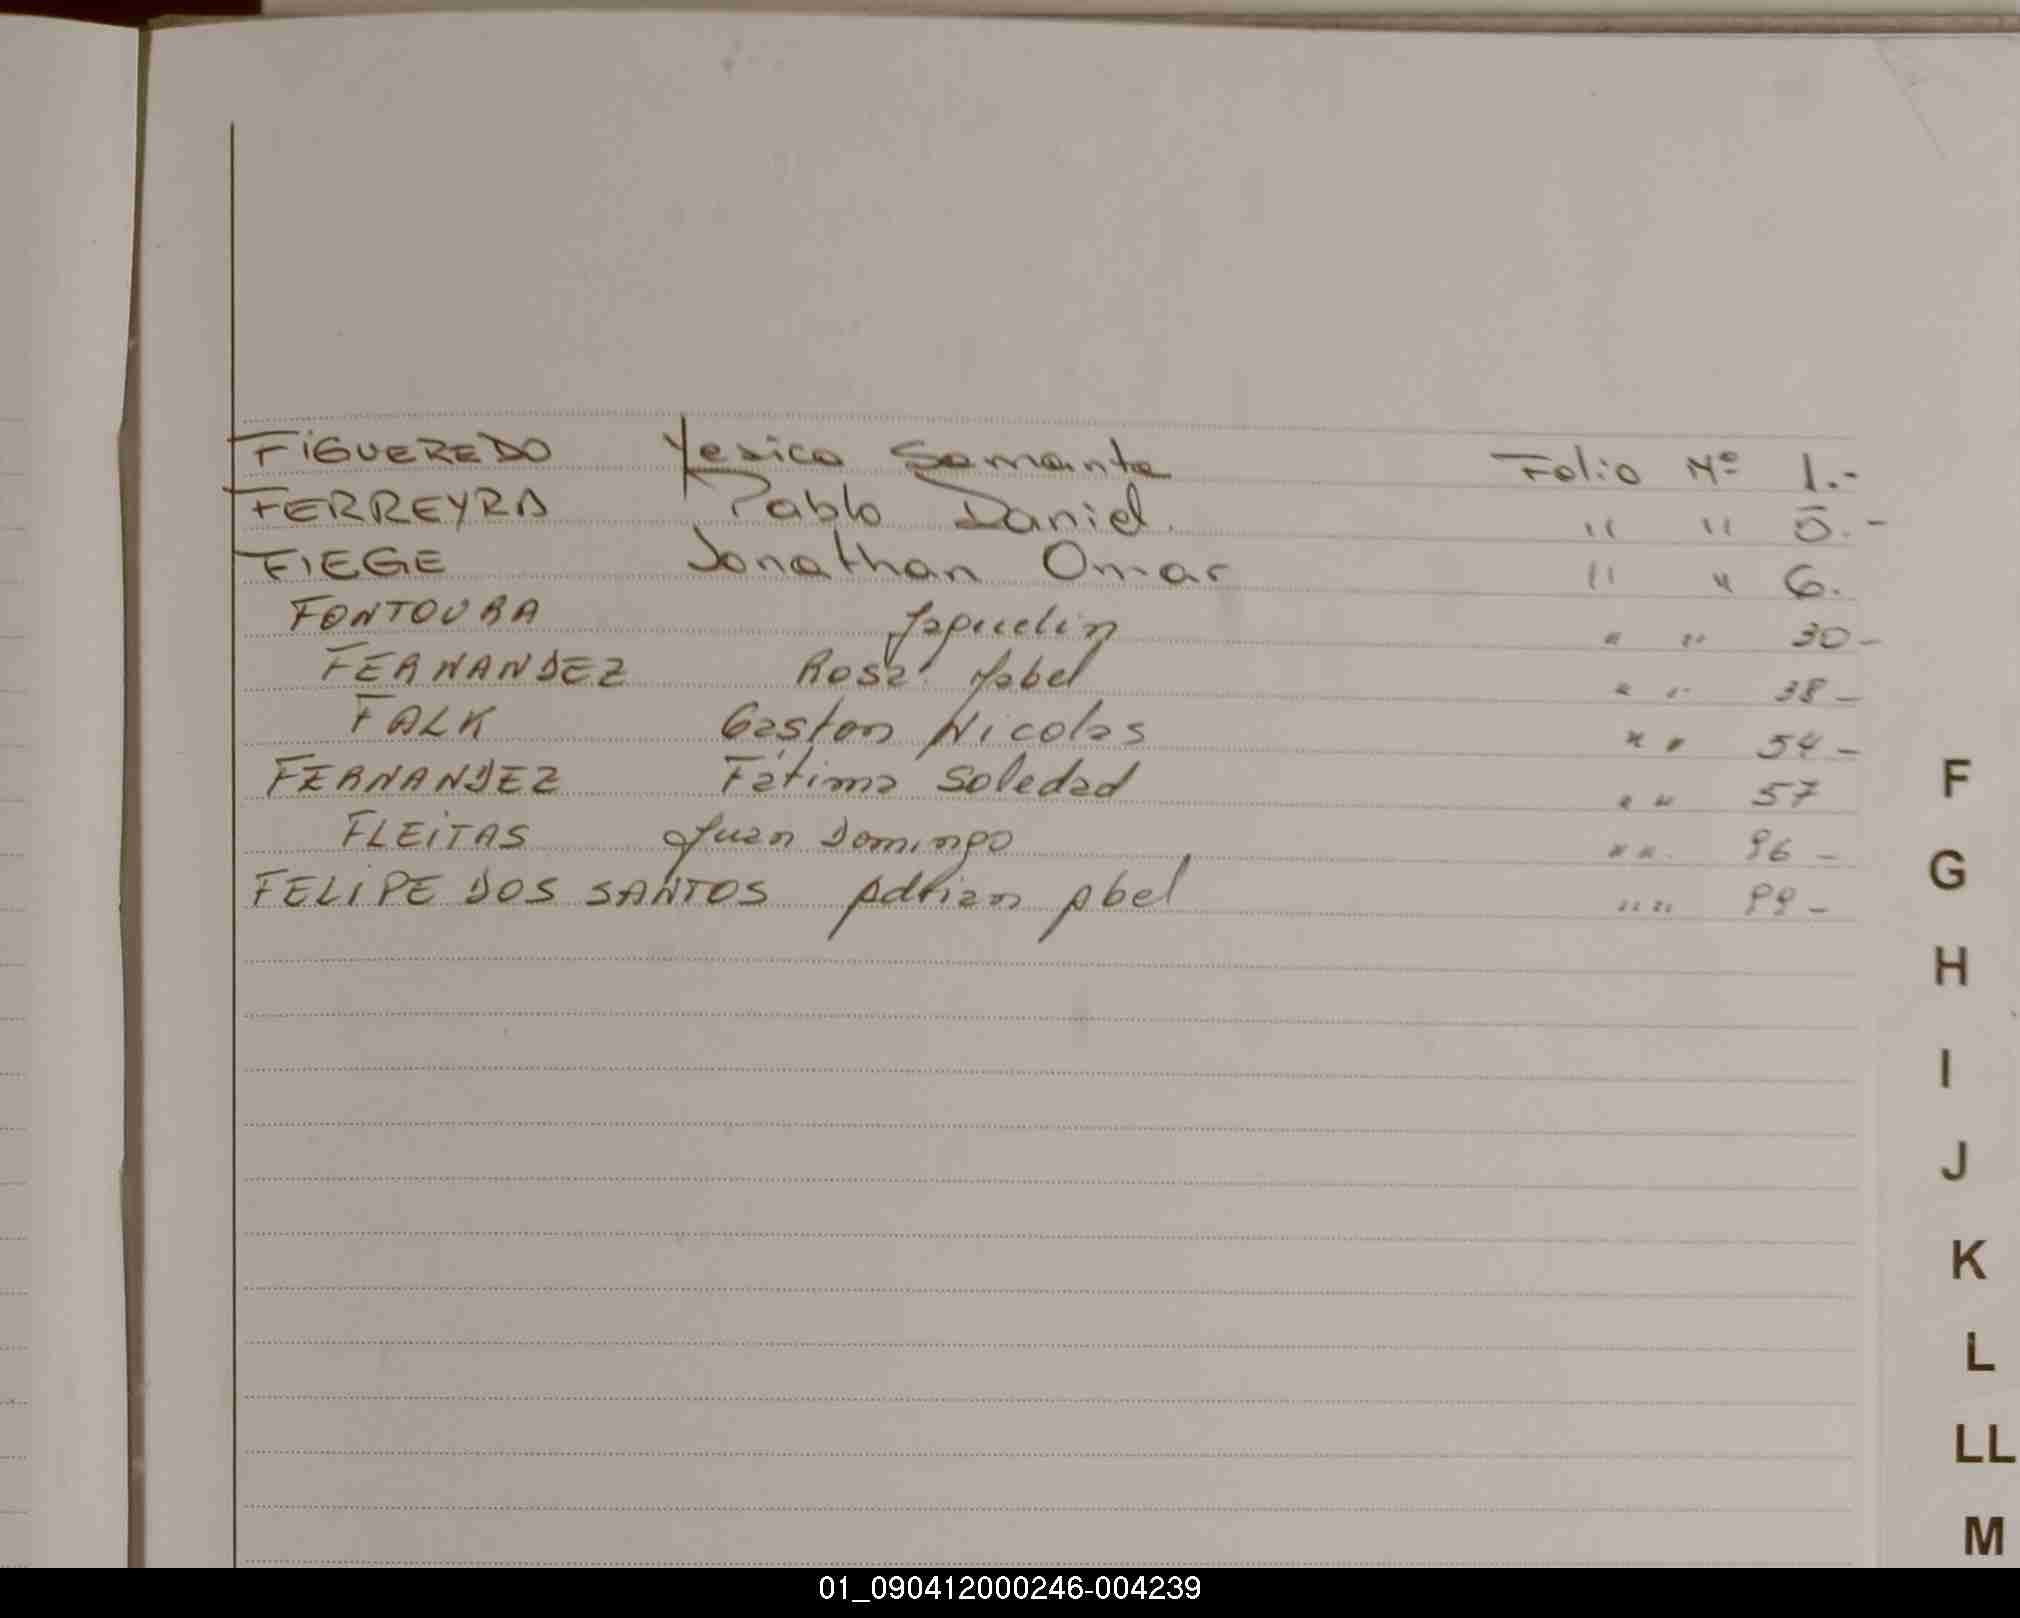 FIGUEREDO Yesica Samanta Folio Nº 1.-
FERREYRA Pablo Daniel. " " 5.-
FIEGE Jonathan Omar " " 6.
FONTOURA Jaquelin " " 30-
FERNANDEZ Rosa Mabel " " 38-
FALK Gaston Nicolas " " 54-
FERNANDEZ Fátima Soledad " " 57
FLEiTAS Juan Domingo " " 96-
FELiPE DOS SANTOS Adrian Abel " " 99-
F
G
H
I
J
K
L
LL
M
01_090412000246-004239